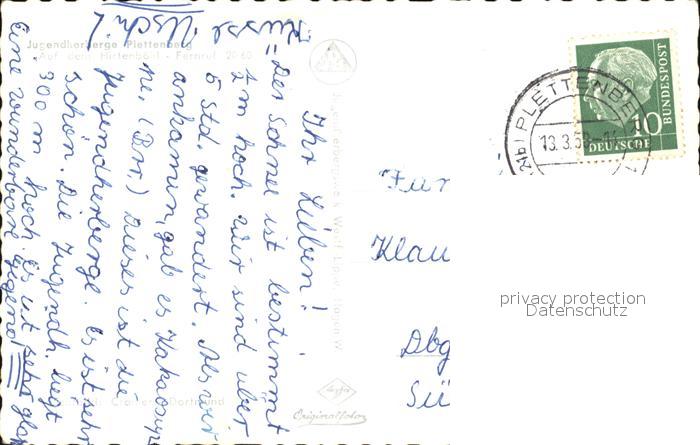 Jugendherberge Plettenberg
Auf dem Hirtenböhl - Fernruf 20 60
Ihr Lieben!
Der Schnee ist bestimmt
1 m hoch. Wir sind über
5 Std. gewandert. Als wir
ankamen, gab es Kakaosup
pe. (Brr.) Dieses ist die
Jugendherberge. Es ist sehr
schön. Die Jugendh. liegt
300 m hoch. Es ist sehr glat
Eine wunderbare Gegend
Küsse Uschi
PLETTENBE
13.3.58
10
DEUTSCHE
BUNDESPOST
Klau
Dbg
Agfa
Originalfoto
Dortmund
privacy protection
Datenschutz